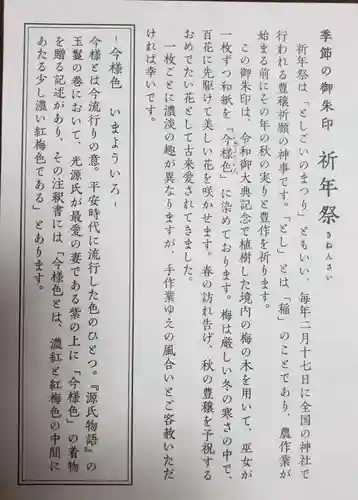 季節の御朱印 祈年祭
きねんさい
祈年祭は「としごいのまつり」ともいい、毎年二月十七日に全国の神社で
行われる豊穣祈願の神事です。「とし」とは「稲」のことであり、農作業が
始まる前にその年の秋の実りと豊作を祈ります。
この御朱印は、令和御大典記念で植樹した境内の梅の木を用いて、巫女が
一枚ずつ和紙を「今様色」に染めております。梅は厳しい冬の寒さの中で、
百花に先駆けて美しい花を咲かせます。春の訪れ告げ、秋の豊穣を予祝する
おめでたい花として古来愛されてきました。
一枚ごとに濃淡の趣が異なりますが、手作業ゆえの風合いとご容赦いただ
ければ幸いです。
-今様色 いまよういろ-
今様とは今流行りの意。平安時代に流行した色のひとつ。『源氏物語』の
玉鬘の巻において、光源氏が最愛の妻である紫の上に「今様色」の着物
を贈る記述があり、その注釈書には「今様色とは、濃紅と紅梅色の中間に
あたる少し濃い紅梅色である」とあります。